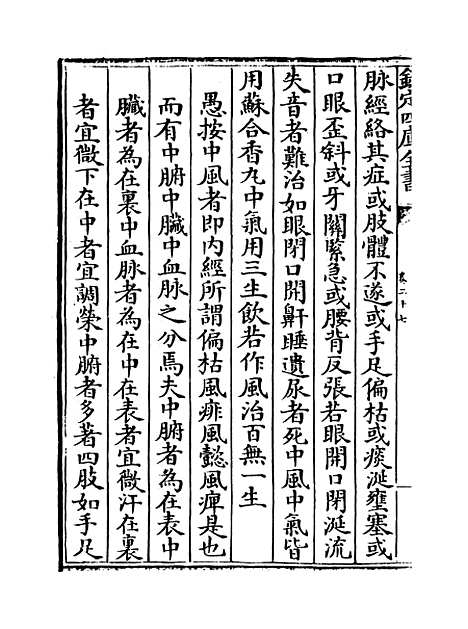 欽定四庫全書
卷二十七
脉經絡其症或肢體不遂或手足偏枯或痰涎壅塞或
口眼歪斜或牙關緊急或腰背反張若眼開口閉涎流
失音者難治如眼閉口開鼾睡遺尿者死中風中氣皆
用蘇合香丸中氣用三生飲若作風治百無一生
愚按中風者即内經所謂偏枯風痱風懿風痺是也
而有中腑中臟中血脉之分焉夫中腑者為在表中
臟者為在裏中血脉者為在中在表者宜微汗在裏
者宜微下在中者宜調榮中腑者多著四肢如手足